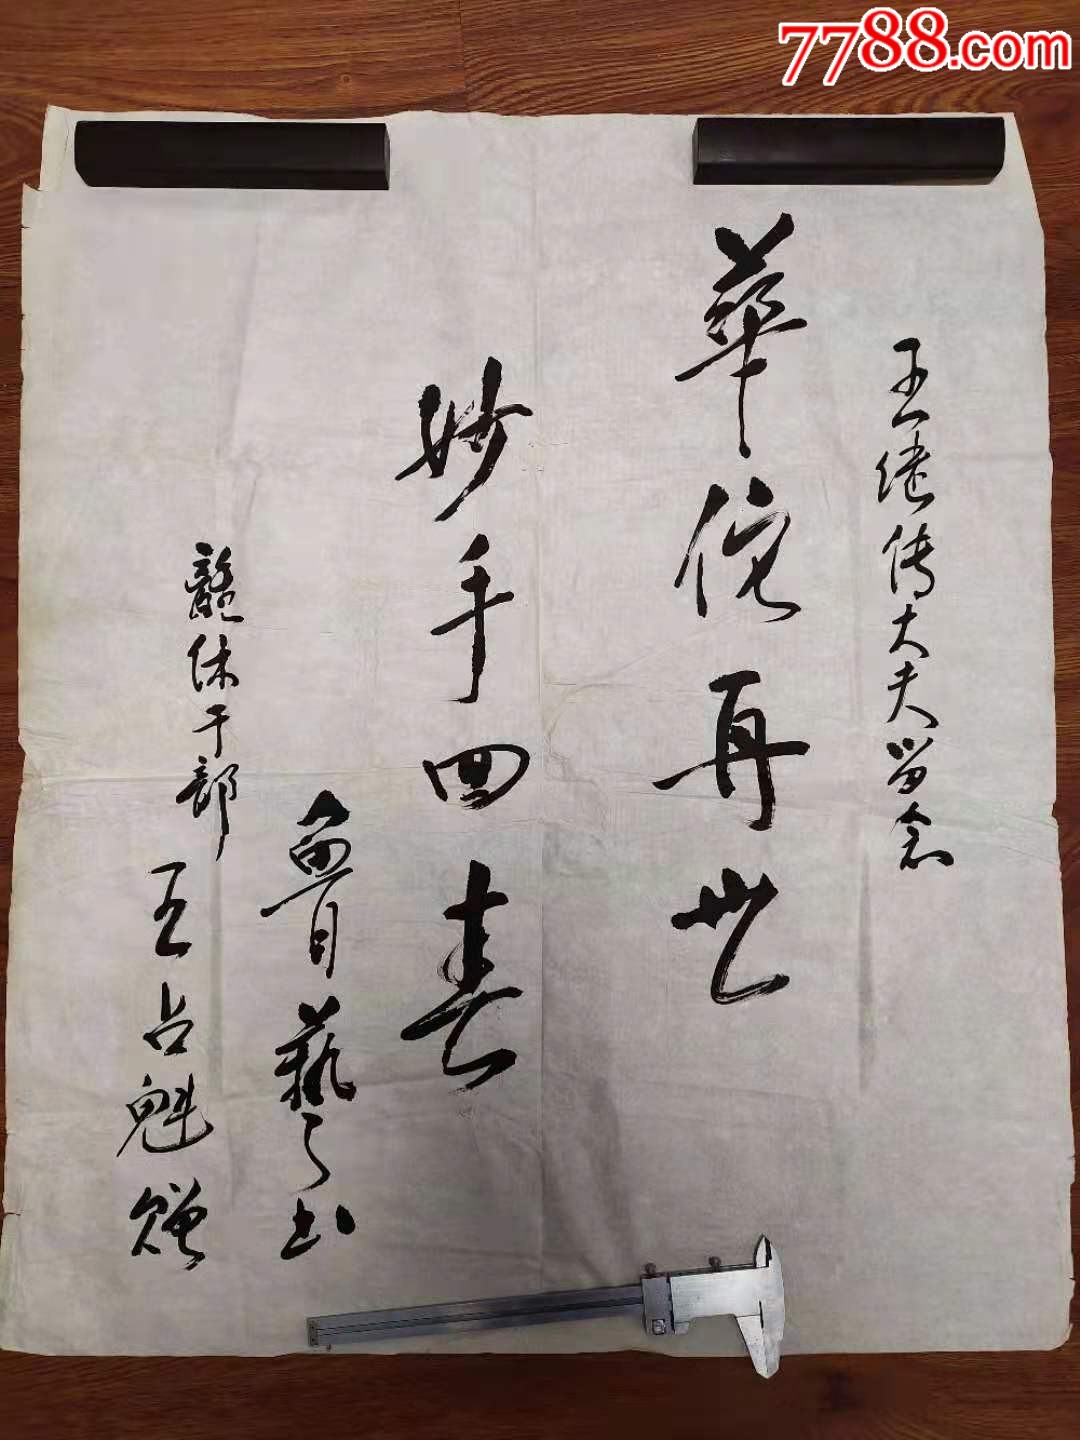 7788.com
王继传大夫留念
華佗再世
妙手回春
魯藝书
離休干部
王占魁贈